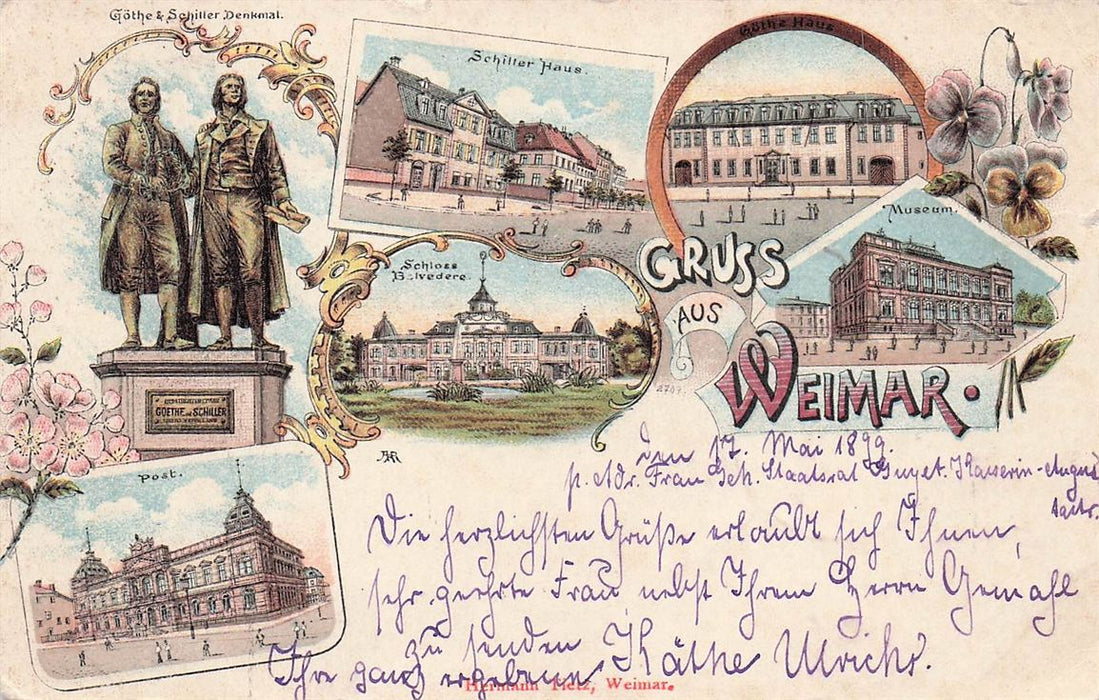 Göthe & Schiller Denkmal.
Schiller Haus.
Göthe Haus
Museum.
Schloss
Belvedere.
GRUSS
AUS
WEIMAR.
2707.
GOETHE und SCHILLER
Post.
den 17. Mai 1899.
p. Adr. Frau Geh. Staatsrat Guyet. Kaiserin-Augus
tastr.
Die herzlichsten Grüße erlaubt sich Ihnen,
sehr geehrte Frau nebst Ihrem Herrn Gemahl
zu senden
Ihre ganz ergebene Käthe Ulrichs.
Hermann Tietz, Weimar.